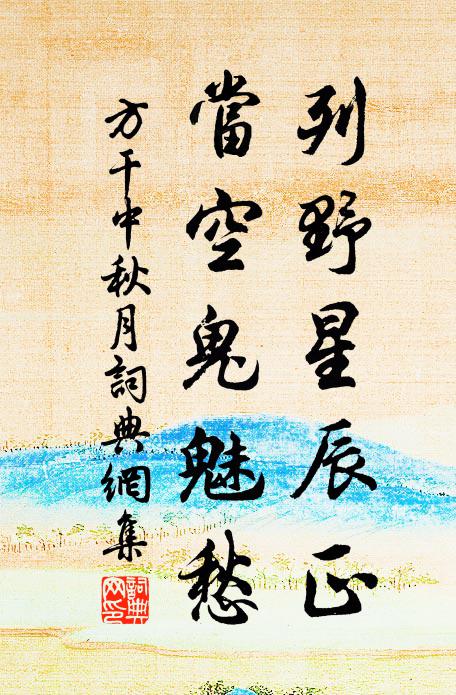 列野星辰正
當空鬼魅愁
方干中秋月詞典網集
詞典網印